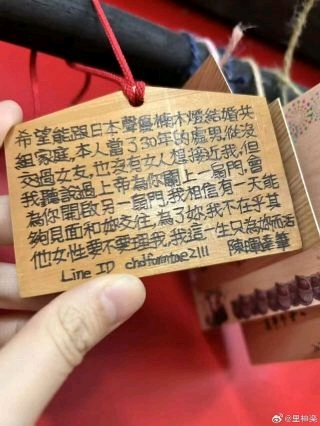 希望能跟日本聲優楠木燈結婚共
組家庭,本人當了30年的處男,從沒
交過女友,也沒有女人想接近我,但
我聽說過上帝為你關上一扇門,會
為你開啟另一扇門,我相信有一天能
夠見面和妳交往,為了妳,我不在乎其
他女性要不要理我,我這一生只為妳而活
陳暉達筆
Line ID
@里神楽